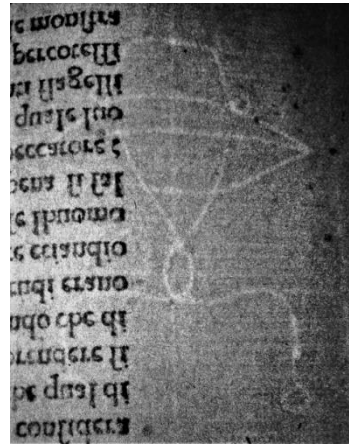 conſidera
he qual di
rendere ſi
ndo che di
tudi erano
e etiandio
e lhuomo
ena ſi ſal
eccatore
quale ſuo
ti flagelli
percoteſſi
e monſtra